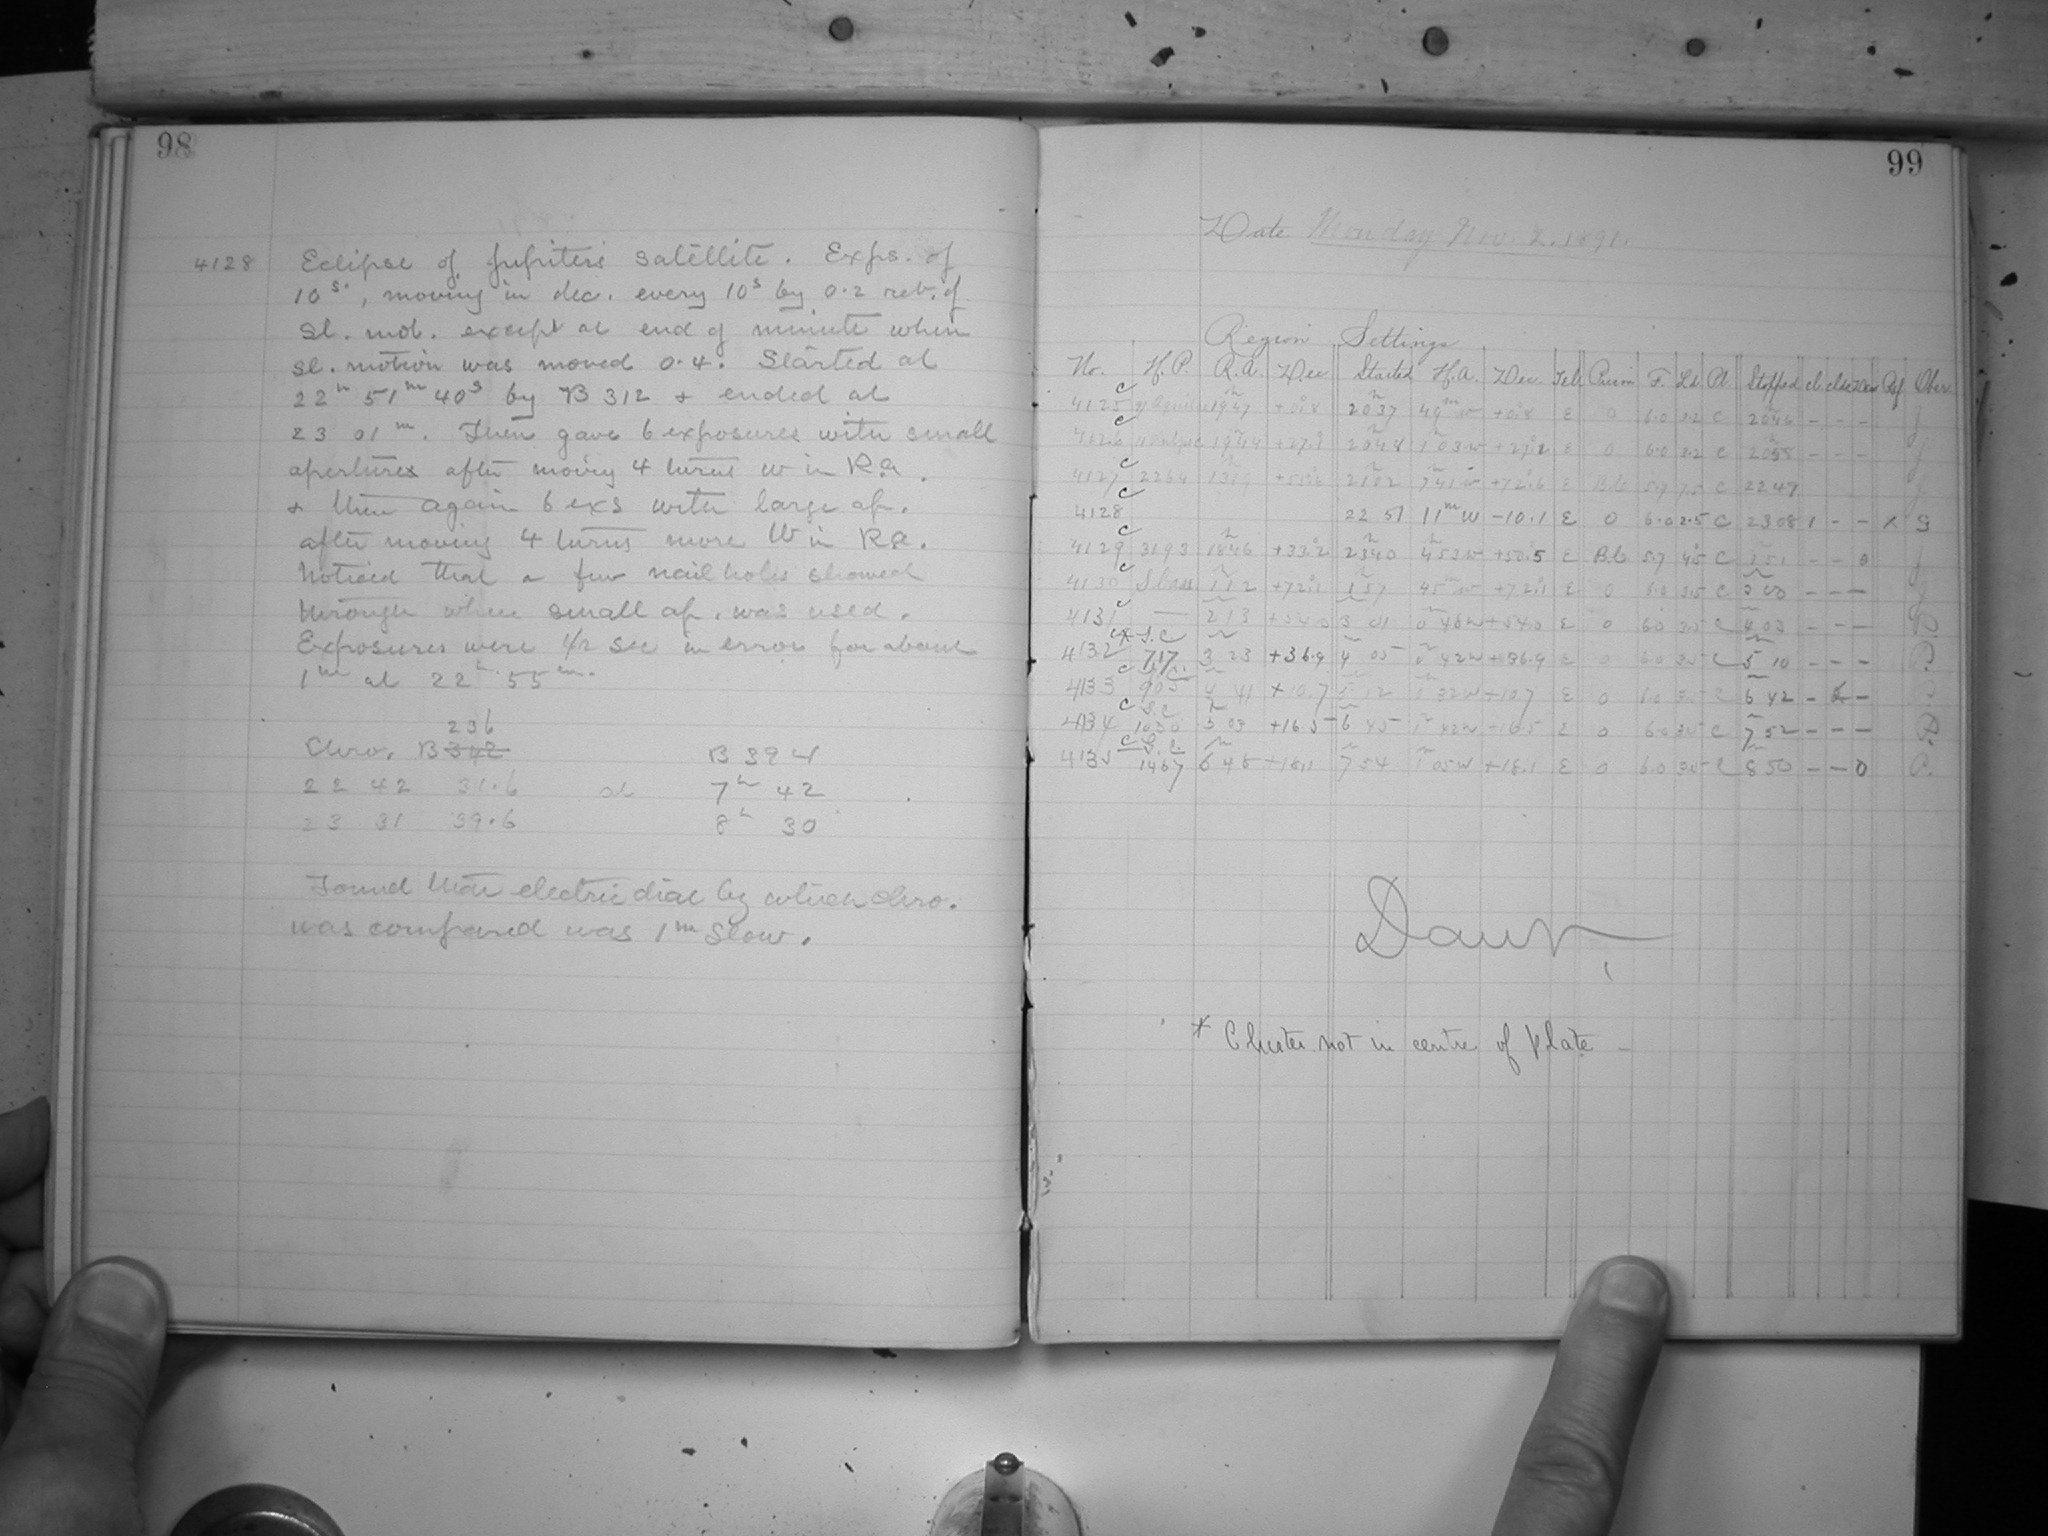 98
4128 Eclipse of Jupiter's satellite. Exps. of
10s., moving in dec. every 10s by 0.2 rev. of
sl. mot. except at end of minute when
sl. motion was moved 0.4. Started at
22h 51m 40s by B 312 & ended at
23 01m. Then gave 6 exposures with small
apertures after moving 4 turns W in R.A.
& then again 6 exs with large ap.
after moving 4 turns more W in R.A.
Noticed that a few nail holes showed
through when small ap. was used.
Exposures were 1/2 sec in error for about
1m at 22h 55m.
236
Chro. B 342 B 394
22 42 31.6 at 7h 42
23 31 39.6 8h 30
Found that electric dial by which chro.
was compared was 1m slow.
99
Date Monday Nov. 2. 1891.
Region Settings
No. H.P. R.A. Dec Started H.A. Dec. Tel. Prism F. Pl. Stopped Obs.
4125 c 1947 +0.8 2037 49m w +0.8 E 0 6.0 3.2 C 2046 - - - J
4126 c +27. 2048 1 03 w +27.2 E 0 6.0 3.2 C 2055 - - - J
4127 c 2264 2102 7 41 w +72.6 E 5.7 7.5 C 2247 J
4128 c 22 51 11m W -10.1 E 0 6.0 2.5 C 2308 1 - - X G
4129 c 3193 1846 +33.2 2340 4 53 w +50.5 E 5.7 4.5 C 1 51 - - 0 J
4130 c 1 12 +72. 1 57 45m w +72. E 0 6.0 3.5 C - - - J
4131 c — 2 13 +54.0 3 01 0 46 w +54.0 E 0 6.0 3.5 C 4 03 - - -
4132 c* S.C. 717 3 23 +36.9 4 05 0 42 w +36.9 E 0 6.0 3.5 C 5 10 - - -
4133 c G.C. 905 4 41 +10.7 5 12 0 32 w +10.7 E 0 6.0 3.5 C 6 42 - -
4134 c G.C. 1030 5 03 +16.5 6 45 1 42 w +16.5 E 0 6.0 3.5 C 7 52 - - -
4135 c G.C. 1467 6 48 +18.1 7 54 1 05 w +18.1 E 0 6.0 3.5 C 8 50 - - 0
Dawn
* Cluster not in centre of plate -